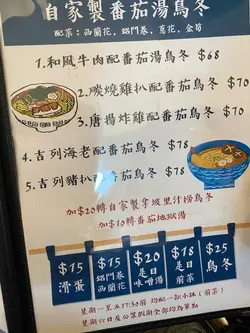 自家製番茄湯烏冬
配菜：西蘭花，鋁門卷，蔥花，金筍
1.和風牛肉配番茄湯烏冬 $68
2.炭燒雞扒配番茄烏冬 $70
3.唐揚炸雞配番茄烏冬 $70
4.吉列海老配番茄烏冬 $78
5.吉列豬扒配番茄烏冬 $78
加$20轉自家製拿坡里汁撈烏冬
加$10轉番茄地獄湯
$15 滑蛋
$15 鋁門卷 西蘭花
$20 是日 味噌湯
$18 是日 前菜
$25 烏冬
星期一至五17:30前 均配一款小缽(前菜)
星期六日及公眾假期全部均為單點